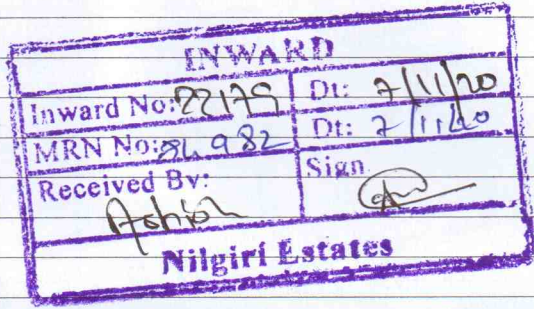 INWARD
Inward No: 22179 Dt: 7/11/20
MRN No: 84982 Dt: 7/11/20
Received By: Sign
Ashish
Nilgiri Estates